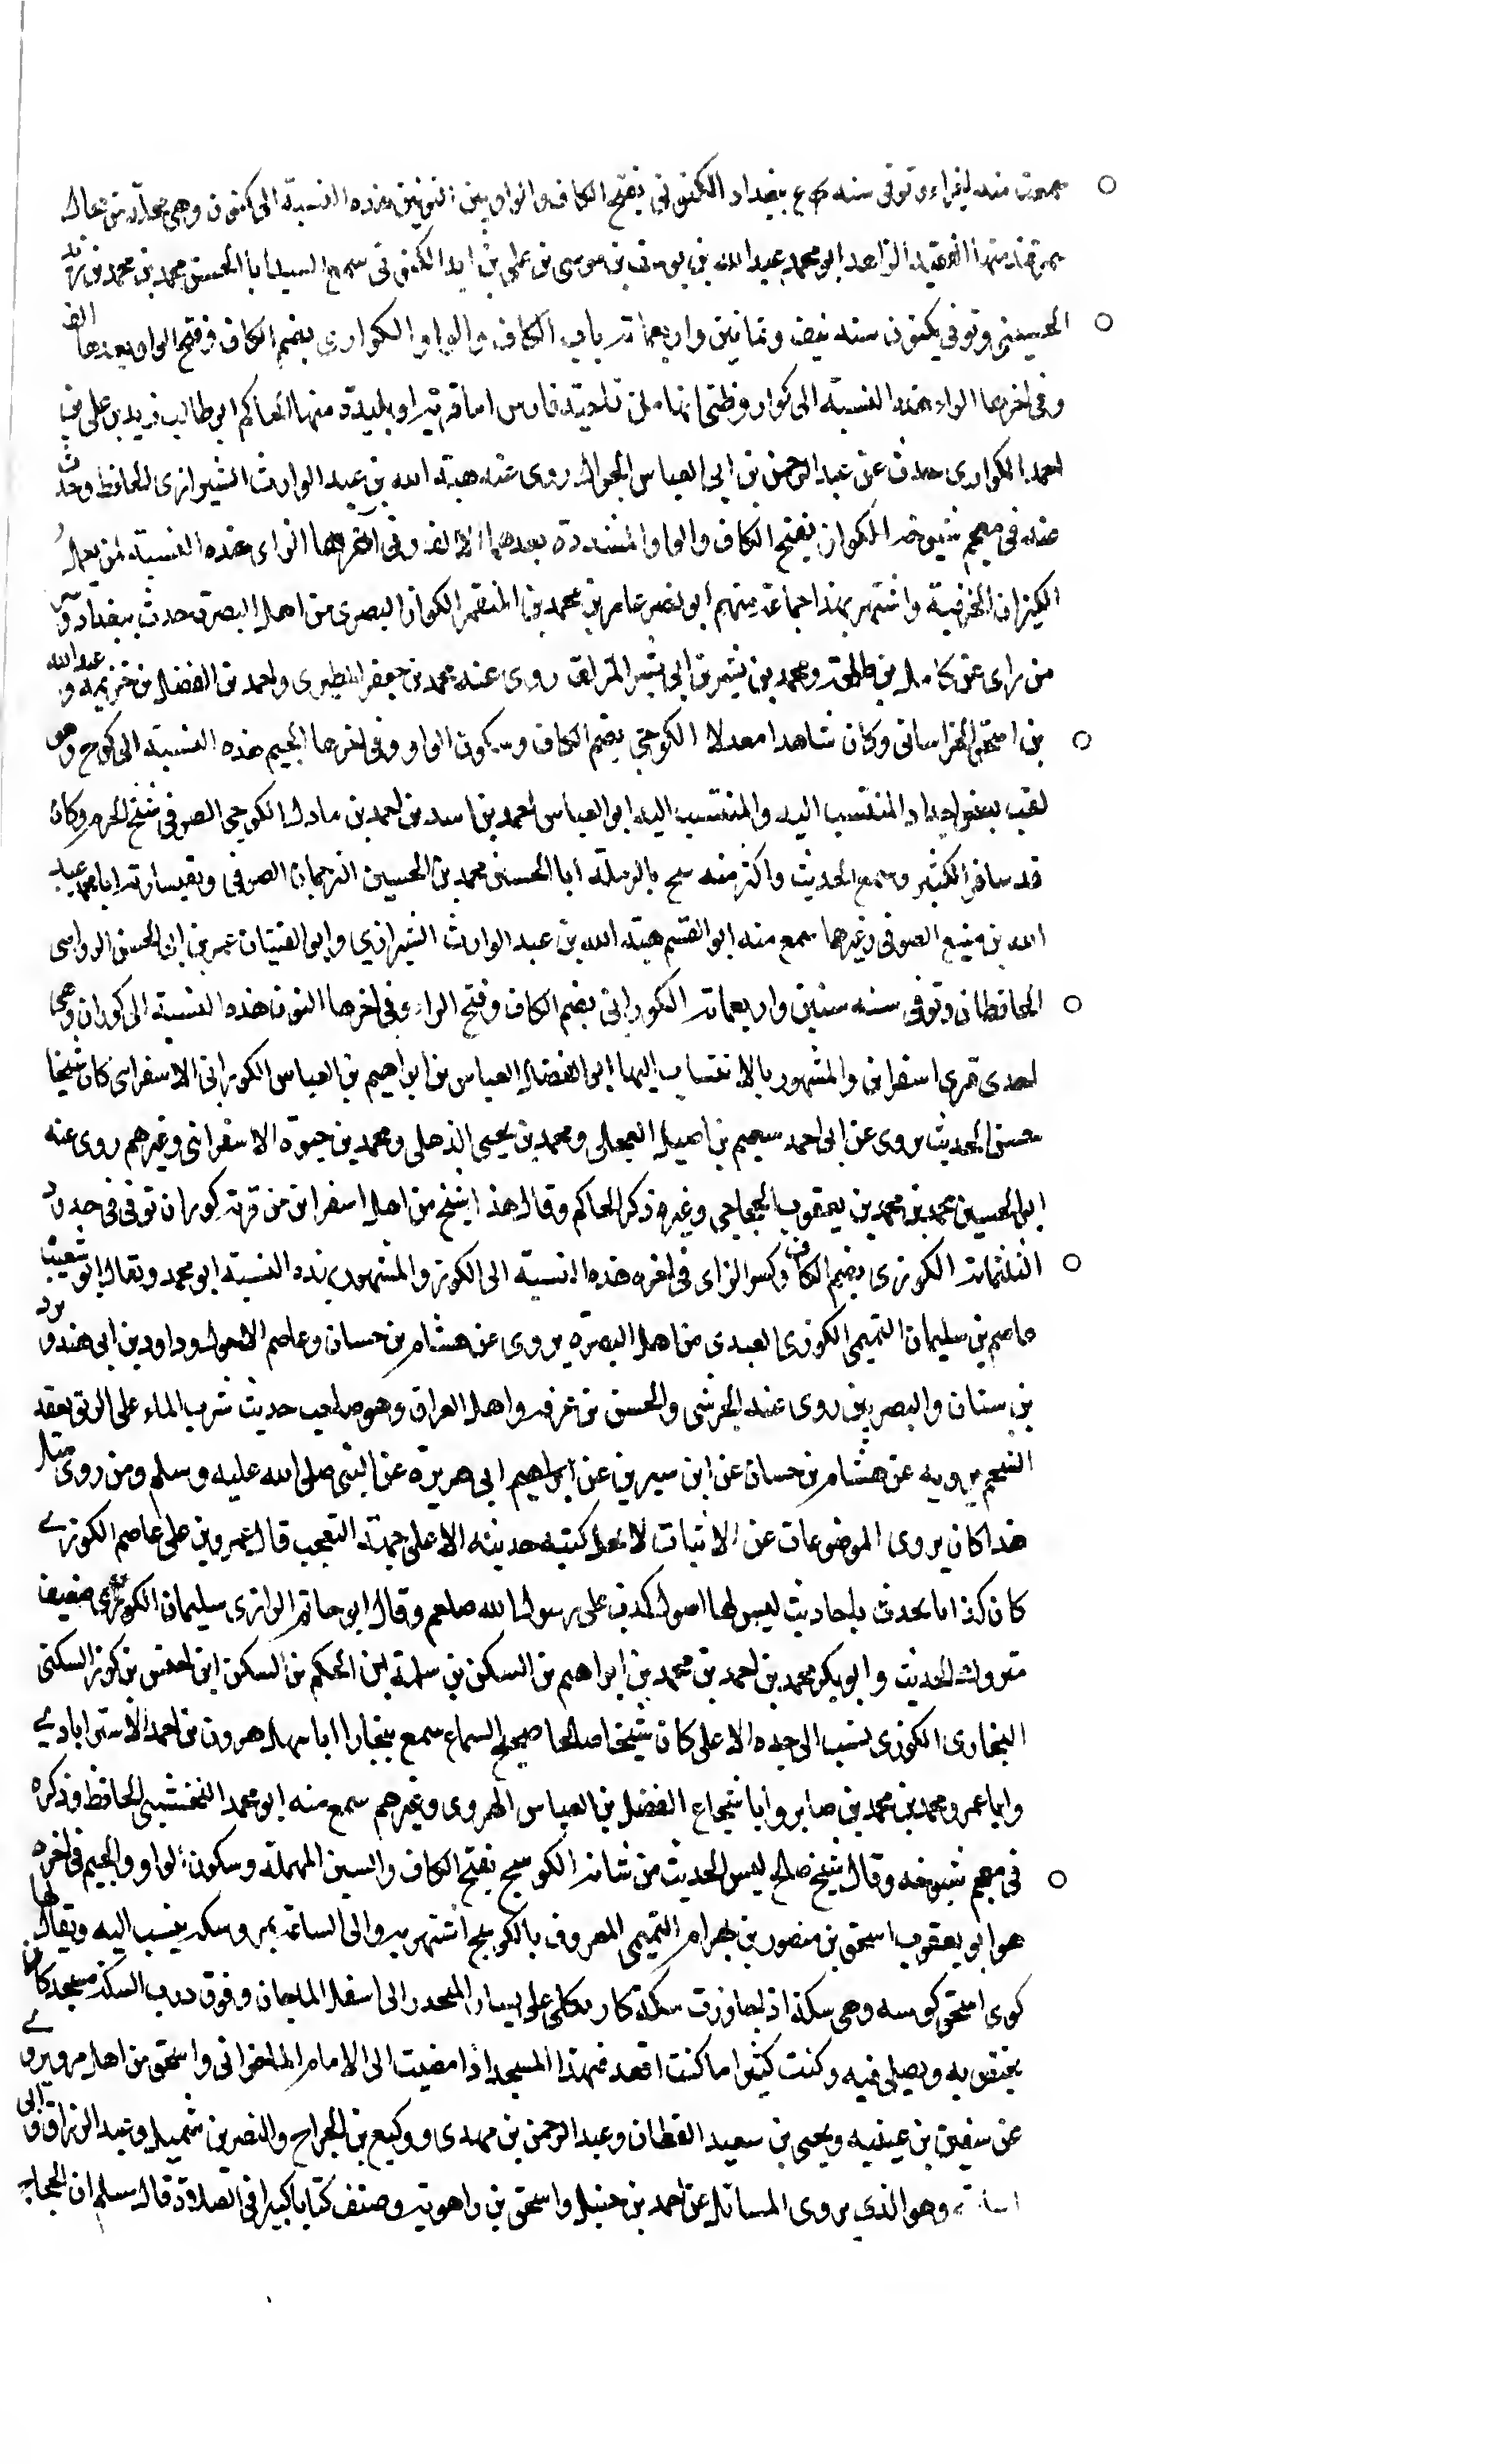 سمعت منه لغراءى توفى سنه ببغداد الكنونى بفتح الكاف والواو بين النونين هذه النسبة الى كنون وهى محلة من محال
سمرقند منها الفقيه الزاهد ابو محمد عبد الله بن يوسف بن موسى بن على بن الكنونى سمع السيد ابا الحسن محمد بن محمد بن زيد
الحسينى وتوفى بكنون سنه نيف وثمانين واربعمائه باب الكاف والواو الكوارى بضم الكاف وفتح الواو بعدها الف
وفى اخرها الراء هذه النسبة الى كوار وظنى انها من ناحية فارس اما قرية او بليدة منها الحاكم ابو طالب زيد بن على بن
احمد الكوارى حدث عن عبد الرحمن بن ابى العباس الجوال روى عنه هبة الله بن عبد الوارث الشيرازى الحافظ وحدث
عنه فى معجم شيوخه الكواز بفتح الكاف والواو المشددة بعدهما الالف وفى اخرها الزاى هذه النسبة لمن يعمل
الكيزان الخزفية واشتهر بهذا جماعة منهم ابو نصر عامر بن محمد بن المتقمر الكواز البصرى من اهل البصرة حدث ببغداد وسر
من راى عن كامل بن طلحة ومحمد بن بشر بن ابى بشر المزلق روى عنه محمد بن جعفر المطيرى واحمد بن الفضل بن خزيمه وعبد الله
بن اسحق الخراسانى وكان شاهدا معدلا الكوجى بضم الكاف وسكون الواو وفى اخرها الجيم هذه النسبة الى كوج وهو
لقب بعض اجداد المنتسب اليه والمنتسب اليه ابو العباس احمد بن اسد بن احمد بن مادل الكوجى الصوفى شيخ الحرم وكان
قد سافر الكثير وسمع الحديث واكثر منه سمع بالرملة ابا الحسين محمد بن الحسين الترجمان الصوفى وبقيسارية ابا محمد عبد
الله بن منيع الصوفى وغيرهما سمع منه ابو القسم هبة الله بن عبد الوارث الشيرازي وابو الفتيان عمر بن ابى الحسن الرواسى
الحافظان وتوفى سنه ستين واربعمائه الكورانى بضم الكاف وفتح الراء وفى اخرها النون هذه النسبة الى كوران وهى
احدى قرى اسفراين والمشهور بالانتساب اليها ابو الفضل العباس بن ابراهيم بن العباس الكورانى الاسفراينى كان شيخا
حسن الحديث يروى عن ابى احمد سحيم بن محمد بن يحيى الذهلى ومحمد بن حيوة الاسفراينى وغيرهم روى عنه
ابو الحسين محمد بن محمد بن يعقوب الحجاجى وغيره ذكر الحاكم وقال هذا شيخ من اهل اسفراين من قرية كوران توفى فى حدود
الثلثمائه الكوزى بضم الكاف وكسر الزاى فى اخره هذه النسبة الى الكوز والمشهور بهذه النسبة ابو محمد ويقال ابو شعيب
عاصم بن سليمان التميمى الكوزى العبدى من اهل البصرة يروى عن هشام بن حسان وعاصم الاحول وداود بن ابى هند وبرد
بن سنان والبصريين روى عنه الحرشى والحسن بن عرفه واهل العراق وهو صاحب حديث شرب الماء على الريق يعقد
الشحم يرويه عن هشام بن حسان عن ابن سيرين عن ابراهيم ابى هريرة عن النبى صلى الله عليه وسلم ومن روى مثل
هذا كان يروى الموضوعات عن الاثبات لا يحل كتبه حديثه الا على جهة التعجب قال عمرو بن على عاصم الكوزى
كان كذابا يحدث باحاديث ليس لها اصول كذب على رسول الله صلعم وقال ابو حاتم الرازى سليمان الكوزى ضعيف
متروك الحديث وابو بكر محمد بن احمد بن محمد بن ابراهيم بن السكن بن سلمة ابن الحكم بن السكن ابن اخنس بن كوز السكنى
البخارى الكوزى نسب الى جده الاعلى كان شيخا صالحا صحيح السماع سمع ببخارا ابا سهل هرون بن احمد الاستراباذى
وابا عمرو محمد بن محمد بن صابر وابا شجاع الفضل بن العباس الهروى وغيرهم سمع منه ابو محمد النخشبى الحافظ وذكره
فى معجم شيوخه وقال شيخ صالح ليس الحديث من شانه الكوسج بفتح الكاف والسين المهملة وسكون الواو والجيم فى اخره
هو ابو يعقوب اسحق بن منصور بن بهرام التميمى المعروف بالكوسج اشتهر به والى الساعة بمرو سكة ينسب اليه ويقال لها
كوى اسحق كوسه وهى سكة اذا جاوزت سكة على يسار المنحدر الى اسفل الماجان وفوق درب السكة مسجد كان
يختص به ويصلى فيه وكنت كثيرا ما كنت اقعد فى هذا المسجد اذا مضيت الى الامام واسحق من اهل مرو يروى
عن سفين بن عيينه ويحيى بن سعيد القطان وعبد الرحمن بن مهدى ووكيع بن الجراح والنضر بن شميل وعبد الرزاق وابى
اسامة وهو الذي يروى المسائل عن احمد بن حنبل واسحق بن راهويه وصنف كتابا كبيرا فى الصلاة قال مسلم ان الحجاج